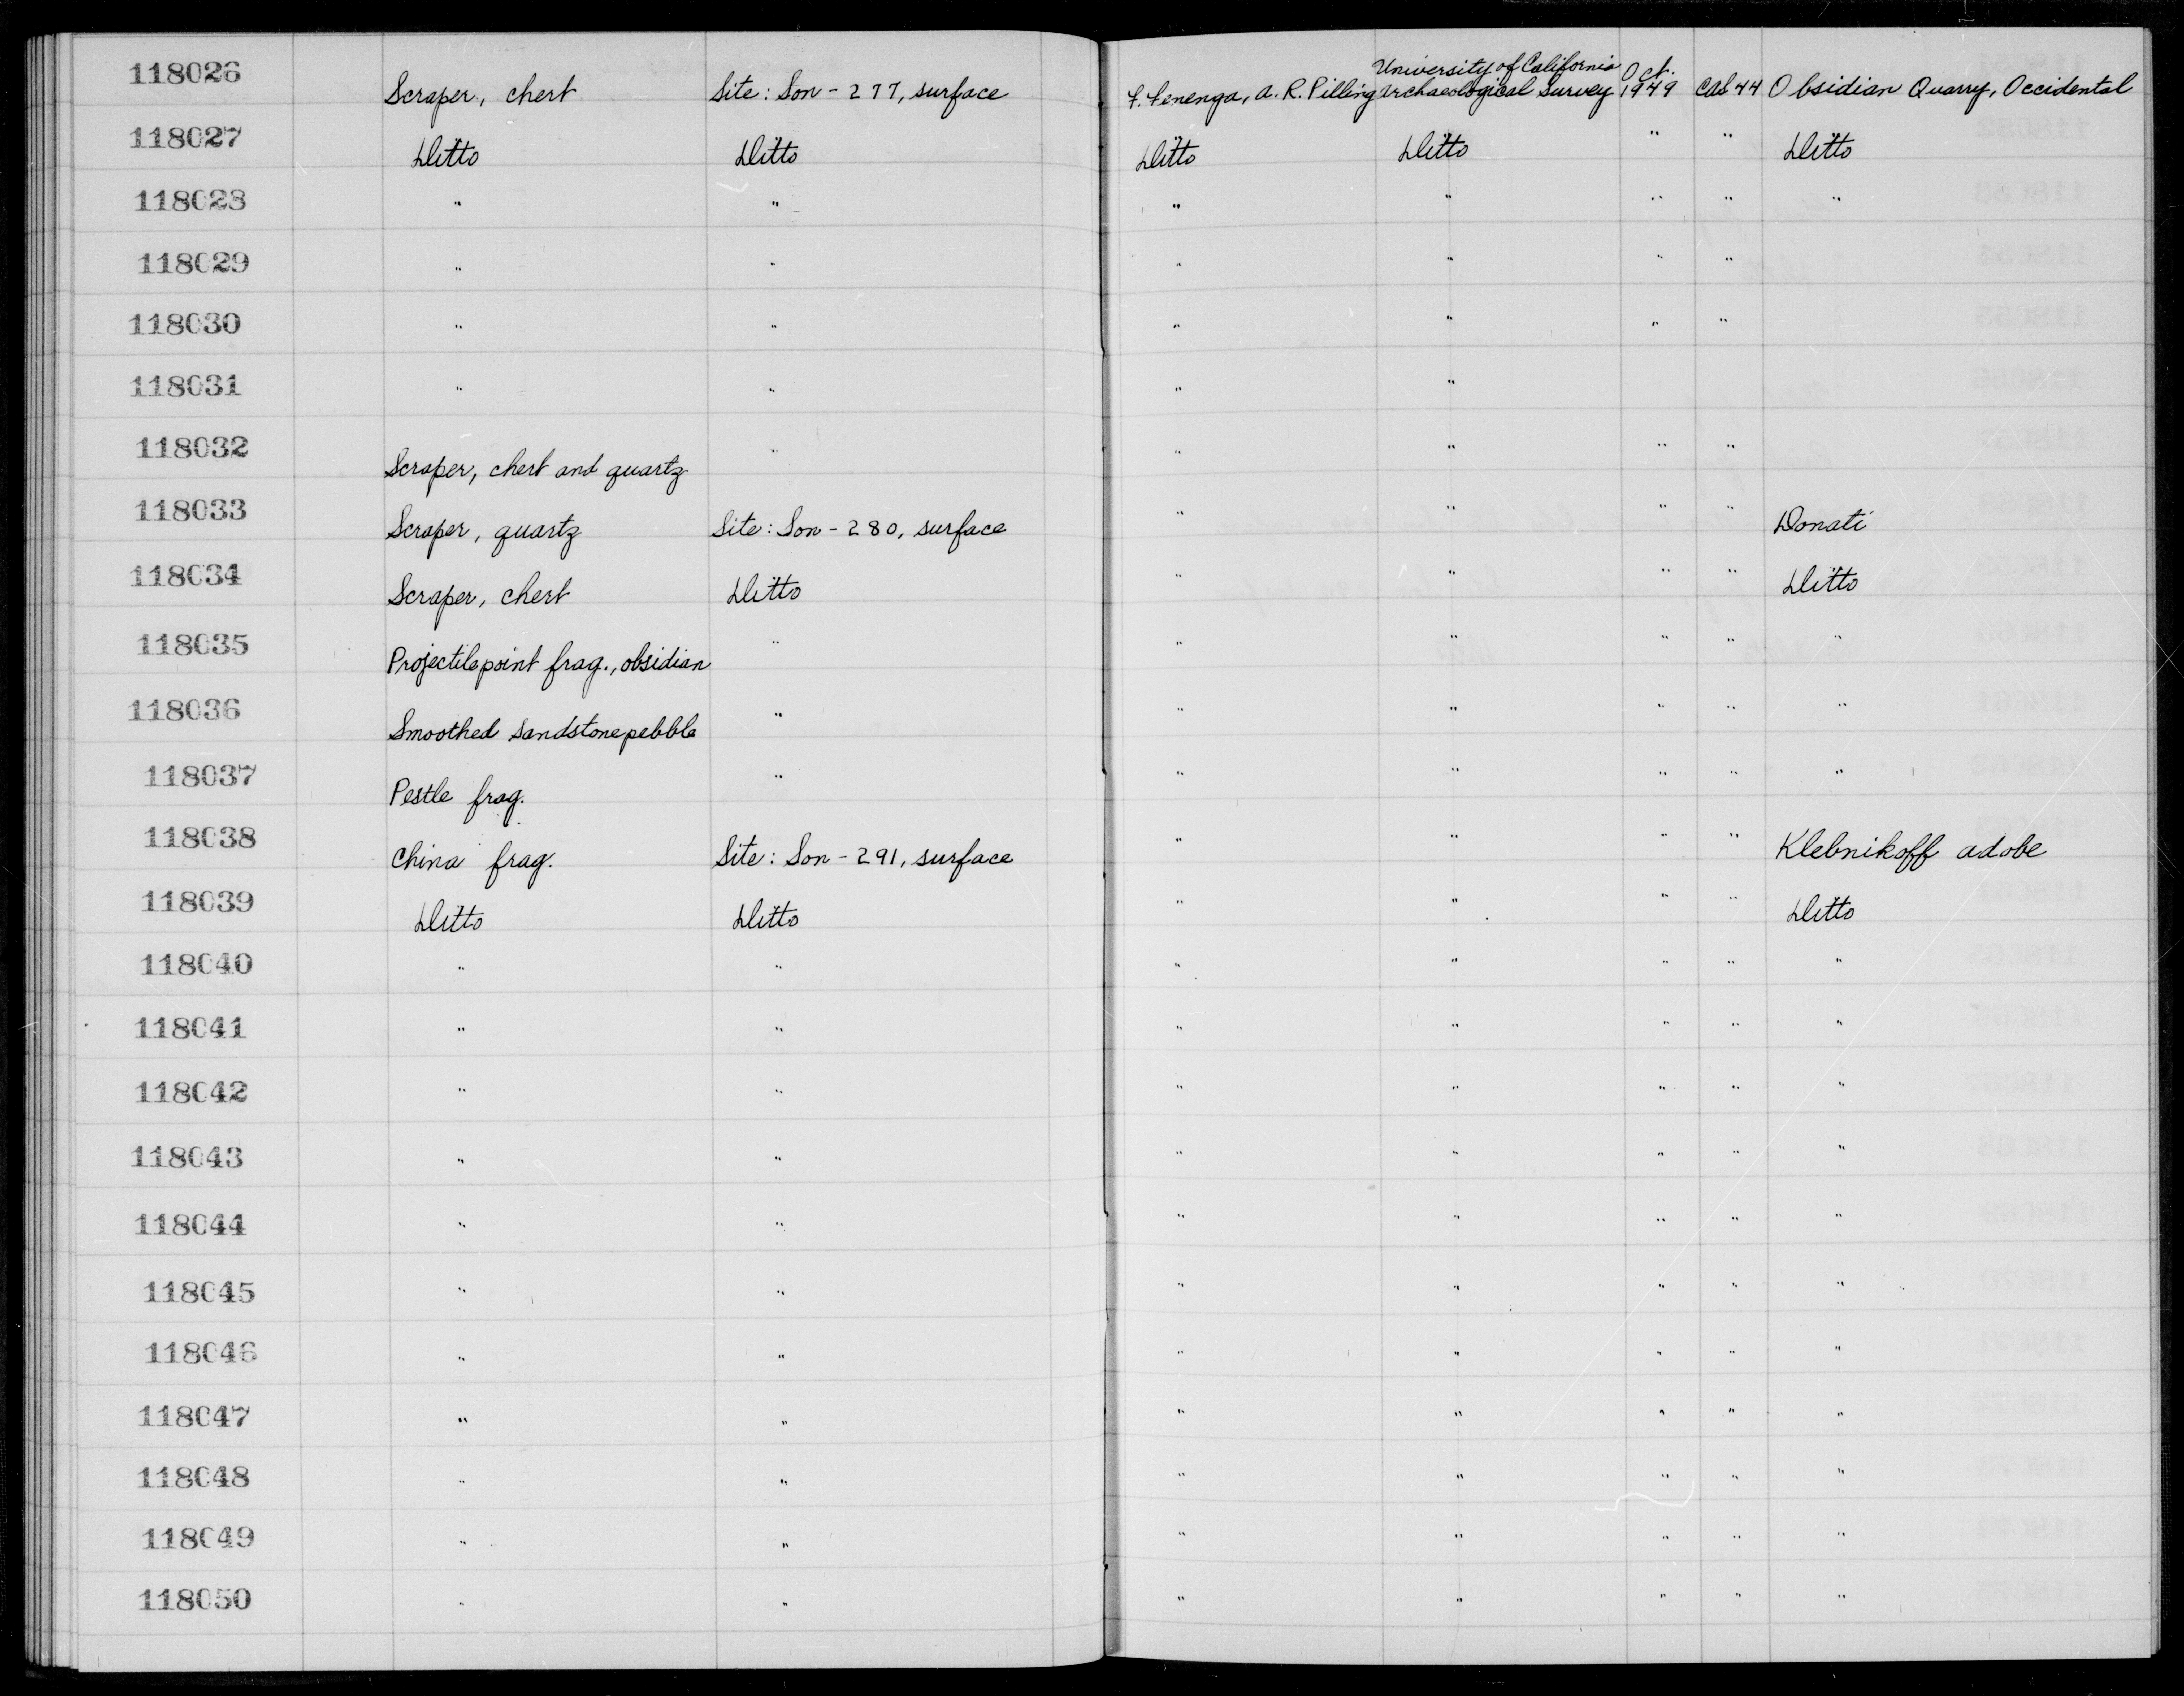 118026 Scraper, chert Site: Son - 277, surface F. Fenenga, A. R. Pilling University of California Archaeological Survey Oct. 1949 Cat 44 Obsidian Quarry, Occidental
118027 Ditto Ditto Ditto Ditto " " Ditto
118028 " " " " " " "
118029 " " " " " "
118030 " " " " " "
118031 " " " "
118032 Scraper, chert and quartz " " " " "
118033 Scraper, quartz Site: Son - 280, surface " " " " Donati
118034 Scraper, chert Ditto " " " " Ditto
118035 Projectile point frag., obsidian " " " " " "
118036 Smoothed sandstone pebble " " " " " "
118037 Pestle frag. " " " " " "
118038 China frag. Site: Son - 291, surface " " " " Klebnikoff adobe
118039 Ditto Ditto " " " " Ditto
118040 " " " " " " "
118041 " " " " " " "
118042 " " " " " " "
118043 " " " " " " "
118044 " " " " " " "
118045 " " " " " " "
118046 " " " " " " "
118047 " " " " " " "
118048 " " " " " " "
118049 " " " " " " "
118050 " " " " " " "